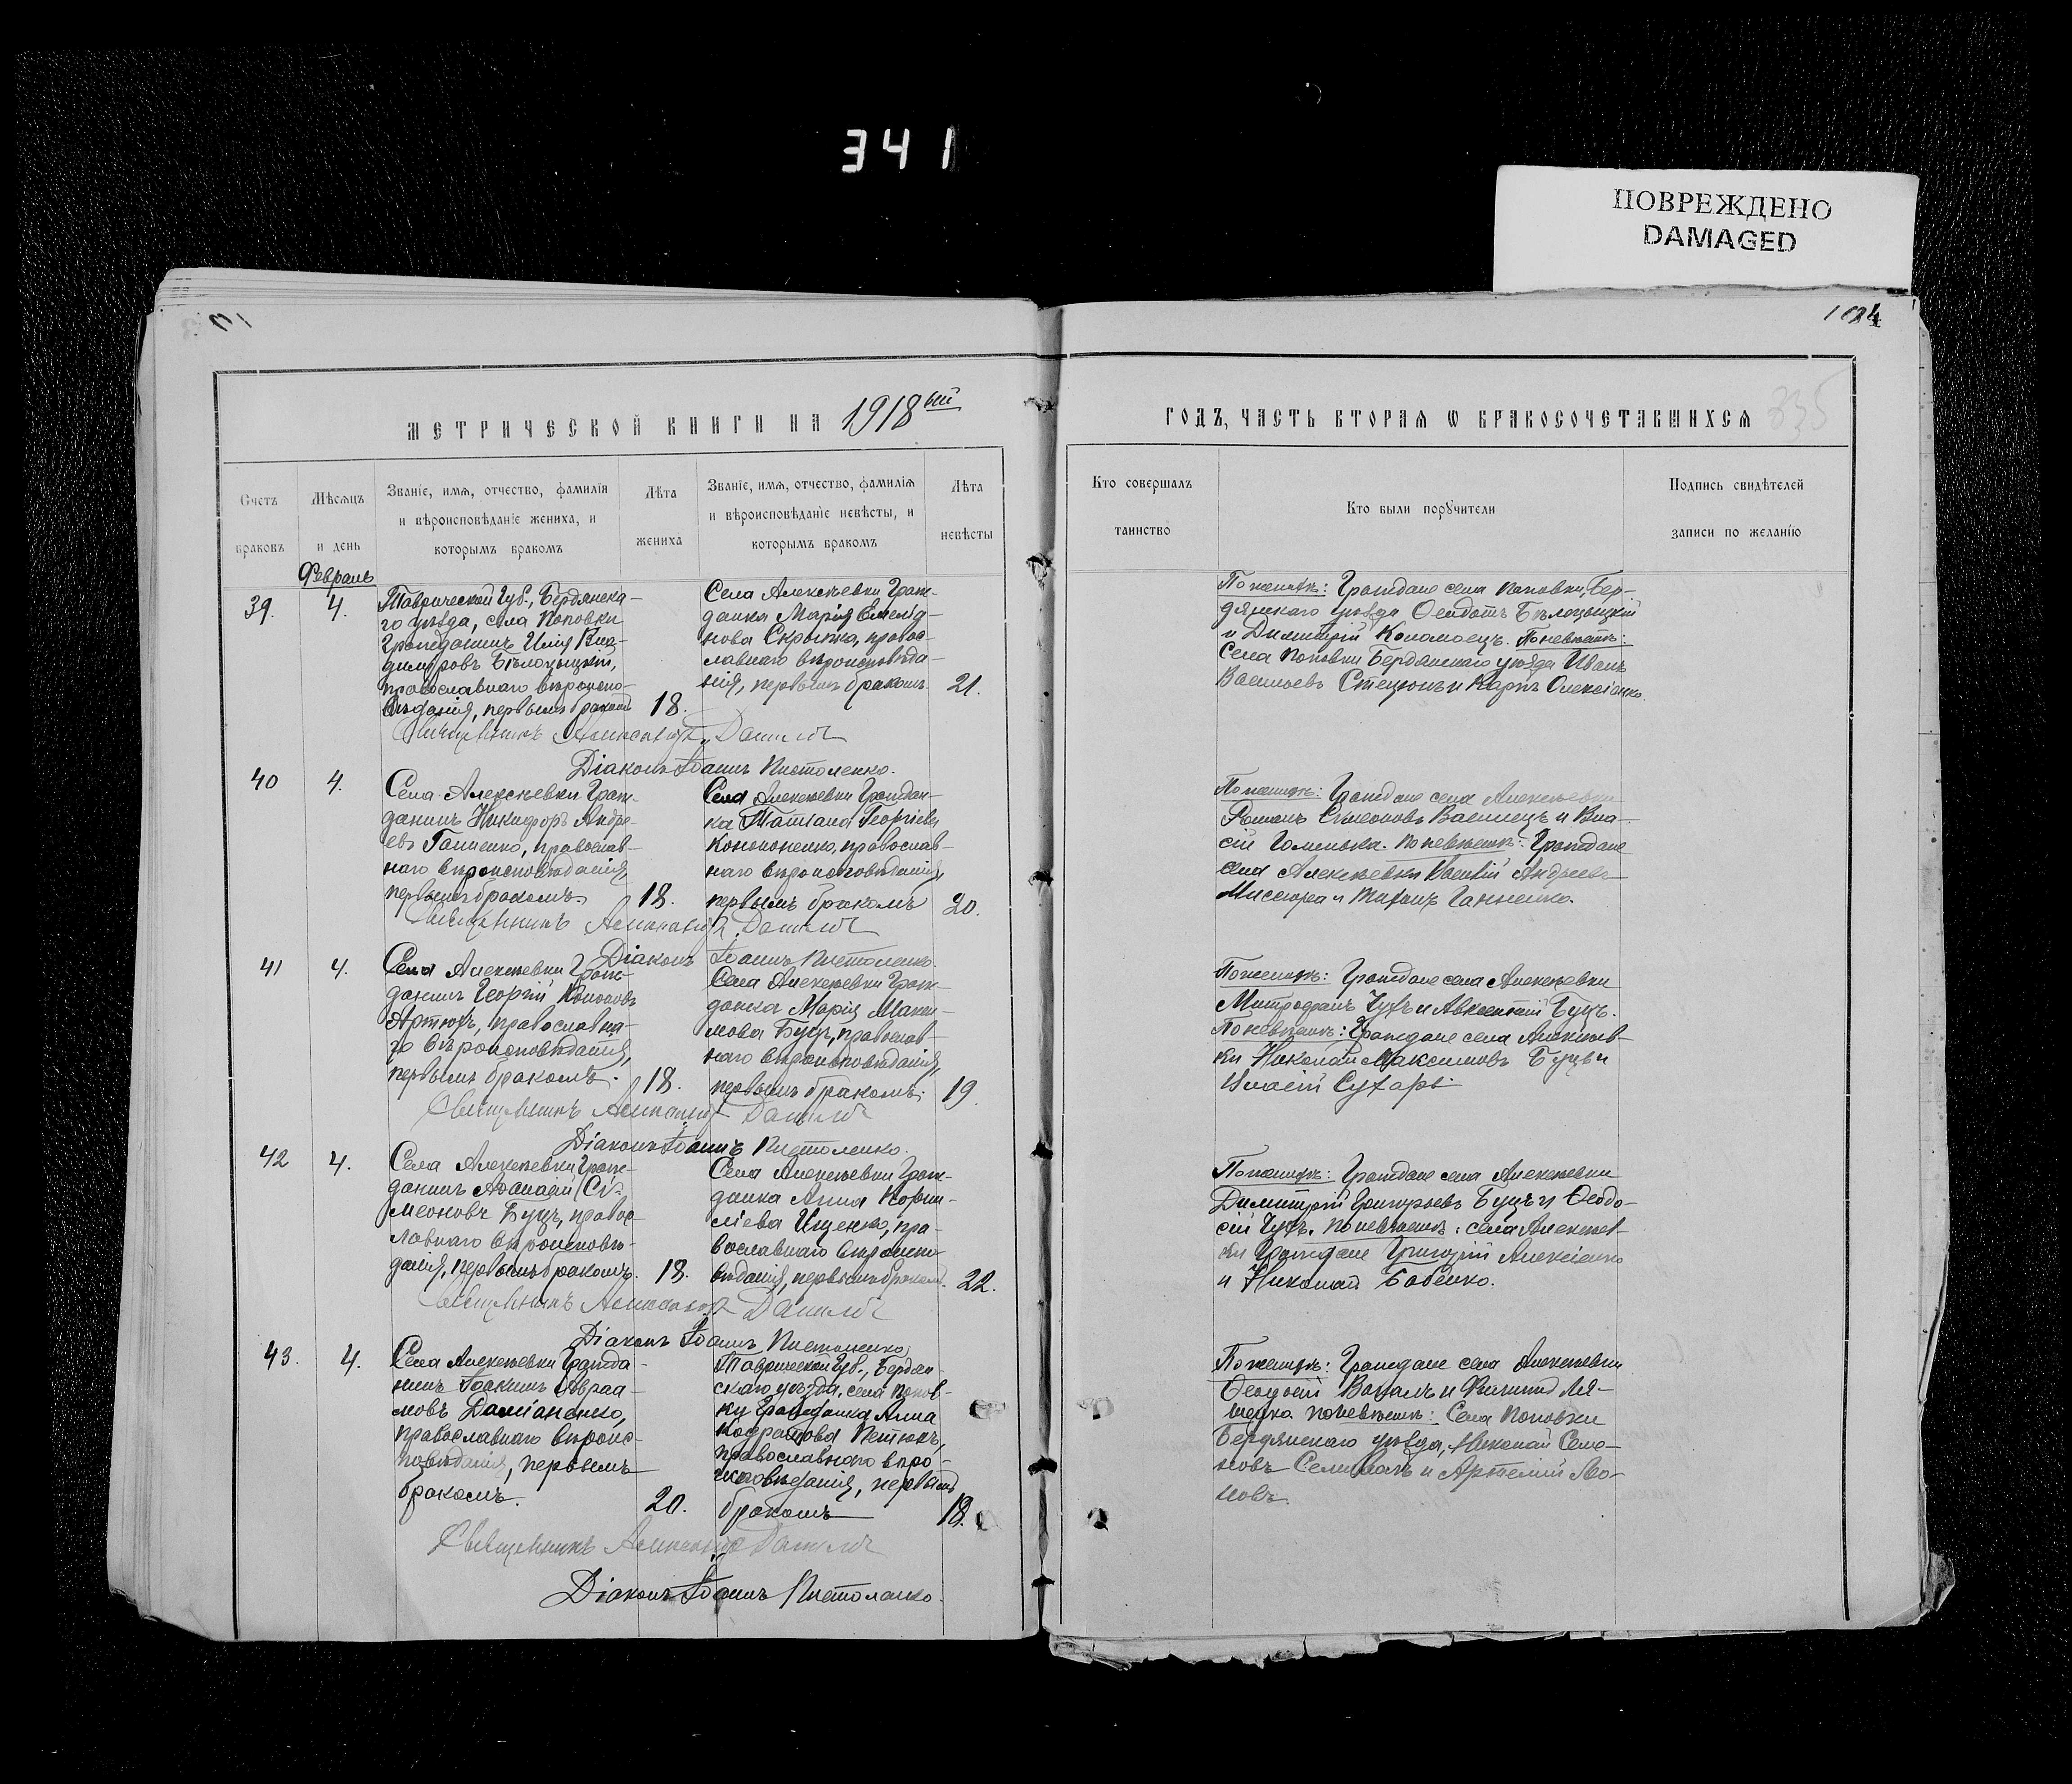 341
ПОВРЕЖДЕНО
DAMAGED
104
335
МЕТРИЧЕСКОЙ КНИГИ НА 1918ый
ГОДЪ, ЧАСТЬ ВТОРАЯ Ѡ БРАКОСОЧЕТАВШИХСЯ
Счетъ браковъ
Мѣсяцъ и день
Званіе, имя, отчество, фамилія
и вѣроисповѣданіе жениха, и
которымъ бракомъ
Лѣта жениха
Званіе, имя, отчество, фамилія
и вѣроисповѣданіе невѣсты, и
которымъ бракомъ
Лѣта невѣсты
Кто совершалъ таинство
Кто были поручители
Подпись свидѣтелей
записи по желанію
Февраль
39. 4.
Таврической Губ., Бердянска-
го уѣзда, села Поповки
Гражданинъ Илія Вла-
димировъ Бѣлоцыцкій,
православнаго вѣроиспо-
вѣданія, первымъ бракомъ 18.
Села Алексѣевки Граж-
данка Марія
нова православ-
лавнаго вѣроисповѣда-
нія, первымъ бракомъ. 21.
По женихѣ: Граждане села Поповки, Бер-
дянскаго уѣзда Ѳеодотъ Бѣлоцыцкій
и Димитрій Коломоецъ. По невѣстѣ:
Села Поповки Бердянскаго уѣзда Иванъ
Васильевъ Стецюнъ и Карпъ Олексіенко.
Священникъ Александръ Данилов
Діаконъ Іоаннъ Пистоленко.
40 4.
Села Алексѣевки Граж-
данинъ Никифоръ Андре-
евъ Ганненко, православ-
наго вѣроисповѣданія,
первымъ бракомъ. 18.
Села Алексѣевки Граждан-
ка Татіана Георгіева
Конононенко, православ-
наго вѣроисповѣданія,
первымъ бракомъ 20.
По женихѣ: Граждане села Алексѣевки
Романъ Симеоновъ Василецъ и Вла-
сій По невѣстѣ: Граждане
села Алексѣевки Андреевъ
и Тихонъ Ганненко.
Священникъ Александръ Данилов
Діаконъ Іоаннъ Пистоленко.
41 4.
Села Алексѣевки Граж-
данинъ Георгій Кононовъ
Артюхъ, православна-
го вѣроисповѣданія,
первымъ бракомъ. 18.
Села Алексѣевки Граж-
данка Марія Макси-
мова Буцъ, православ-
наго вѣроисповѣданія,
первымъ бракомъ. 19.
По женихѣ: Граждане села Алексѣевки
Митрофанъ и Авксентій Буцъ.
По невѣстѣ: Граждане села Алексѣев-
ки Николай Максимовъ Буцъ и
Власій Сухарь.
Священникъ Александръ Данилов
Діаконъ Іоаннъ Пистоленко.
42 4.
Села Алексѣевки Граж-
данинъ Аѳанасій Си-
меоновъ Буцъ, правос-
лавнаго вѣроисповѣ-
данія, первымъ бракомъ. 18.
Села Алексѣевки Граж-
данка Анна Корни-
ліева Ищенко, пра-
вославнаго вѣроиспо-
вѣданія, первымъ бракомъ. 22.
По женихѣ: Граждане села Алексѣевки
Димитрій Григорьевъ Буцъ и Ѳеодо-
сій По невѣстѣ: села Алексѣев-
ки Граждане Григорій Алексіенко
и Николай Бабенко.
Священникъ Александръ Данилов
Діаконъ Іоаннъ Пистоленко
43. 4.
Села Алексѣевки Гражда-
нинъ Іоакимъ Авраа-
мовъ Даміаненко,
православнаго вѣроис-
повѣданія, первымъ
бракомъ. 20.
Таврической Губ., Бердян-
скаго уѣзда, села Попов-
ки Гражданка Анна
Кодратова Петюхъ,
православнаго вѣро-
исповѣданія, первымъ
бракомъ 18.
По женихѣ: Граждане села Алексѣевки
Ѳеодосій и Филиппъ Ля-
По невѣстѣ: Села Поповки
Бердянскаго уѣзда, Николай Семе-
новъ Селиванъ и Артемій
новъ.
Священникъ Александръ Данилов
Діаконъ Іоаннъ Пистоленко.